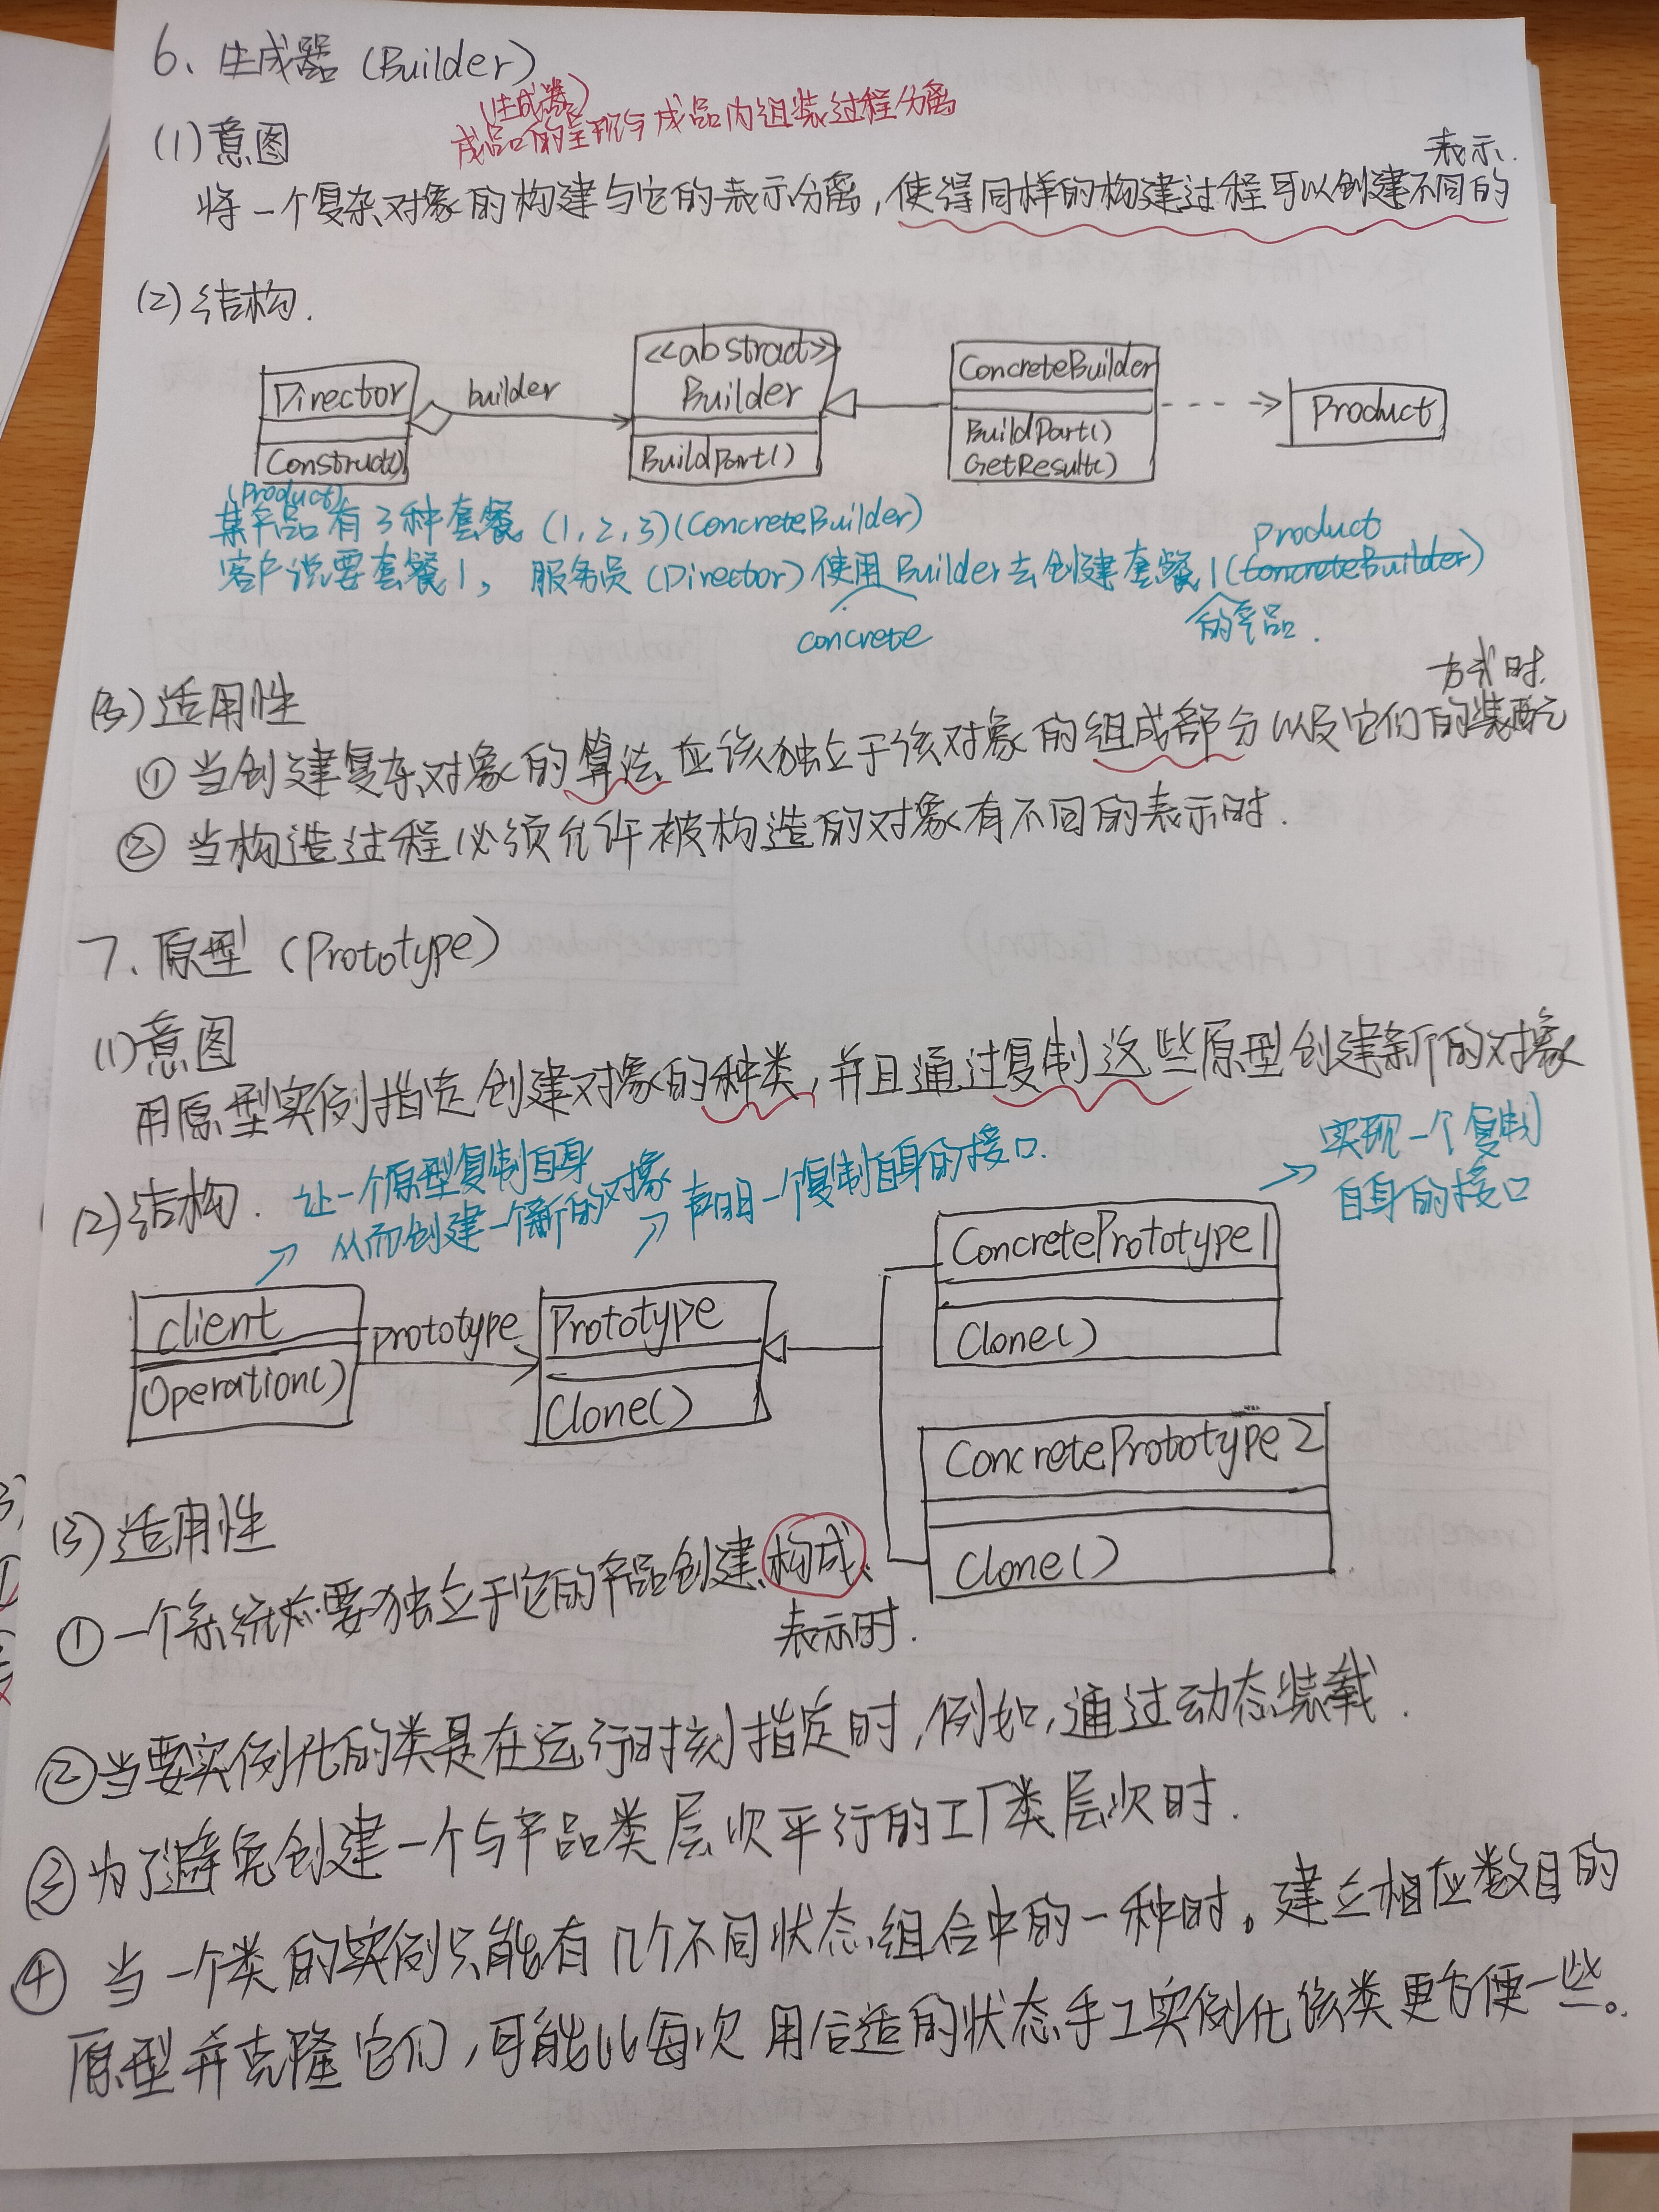 6、生成器（Builder）
(生成器)
成品的呈现与成品内组装过程分离
(1)意图
将一个复杂对象的构建与它的表示分离，使得同样的构建过程可以创建不同的
表示.
(2)结构.
Director
Construct()
builder
<<abstract>>
Builder
BuildPart()
ConcreteBuilder
BuildPart()
GetResult()
Product
(Product)
某产品有3种套餐。(1,2,3)(ConcreteBuilder)
客户说要套餐1，服务员(Director)使用Builder去创建套餐1(ConcreteBuilder)
Product
concrete
的产品.
(3)适用性
①当创建复杂对象的算法应该独立于该对象的组成部分以及它们的装配
方式时.
②当构造过程必须允许被构造的对象有不同的表示时.
7、原型（Prototype）
(1)意图
用原型实例指定创建对象的种类，并且通过复制这些原型创建新的对象
(2)结构.
让一个原型复制自身
从而创建一个新的对象
声明一个复制自身的接口.
实现一个复制
自身的接口
client
Operation()
prototype
Prototype
Clone()
ConcretePrototype1
Clone()
ConcretePrototype2
Clone()
(3)适用性
①一个系统要独立于它的产品创建、构成、
表示时.
②当要实例化的类是在运行时刻指定时，例如，通过动态装载.
③为了避免创建一个与产品类层次平行的工厂类层次时.
④当一个类的实例只能有几个不同状态组合中的一种时。建立相应数目的
原型并克隆它们，可能比每次用合适的状态手工实例化该类更方便一些。